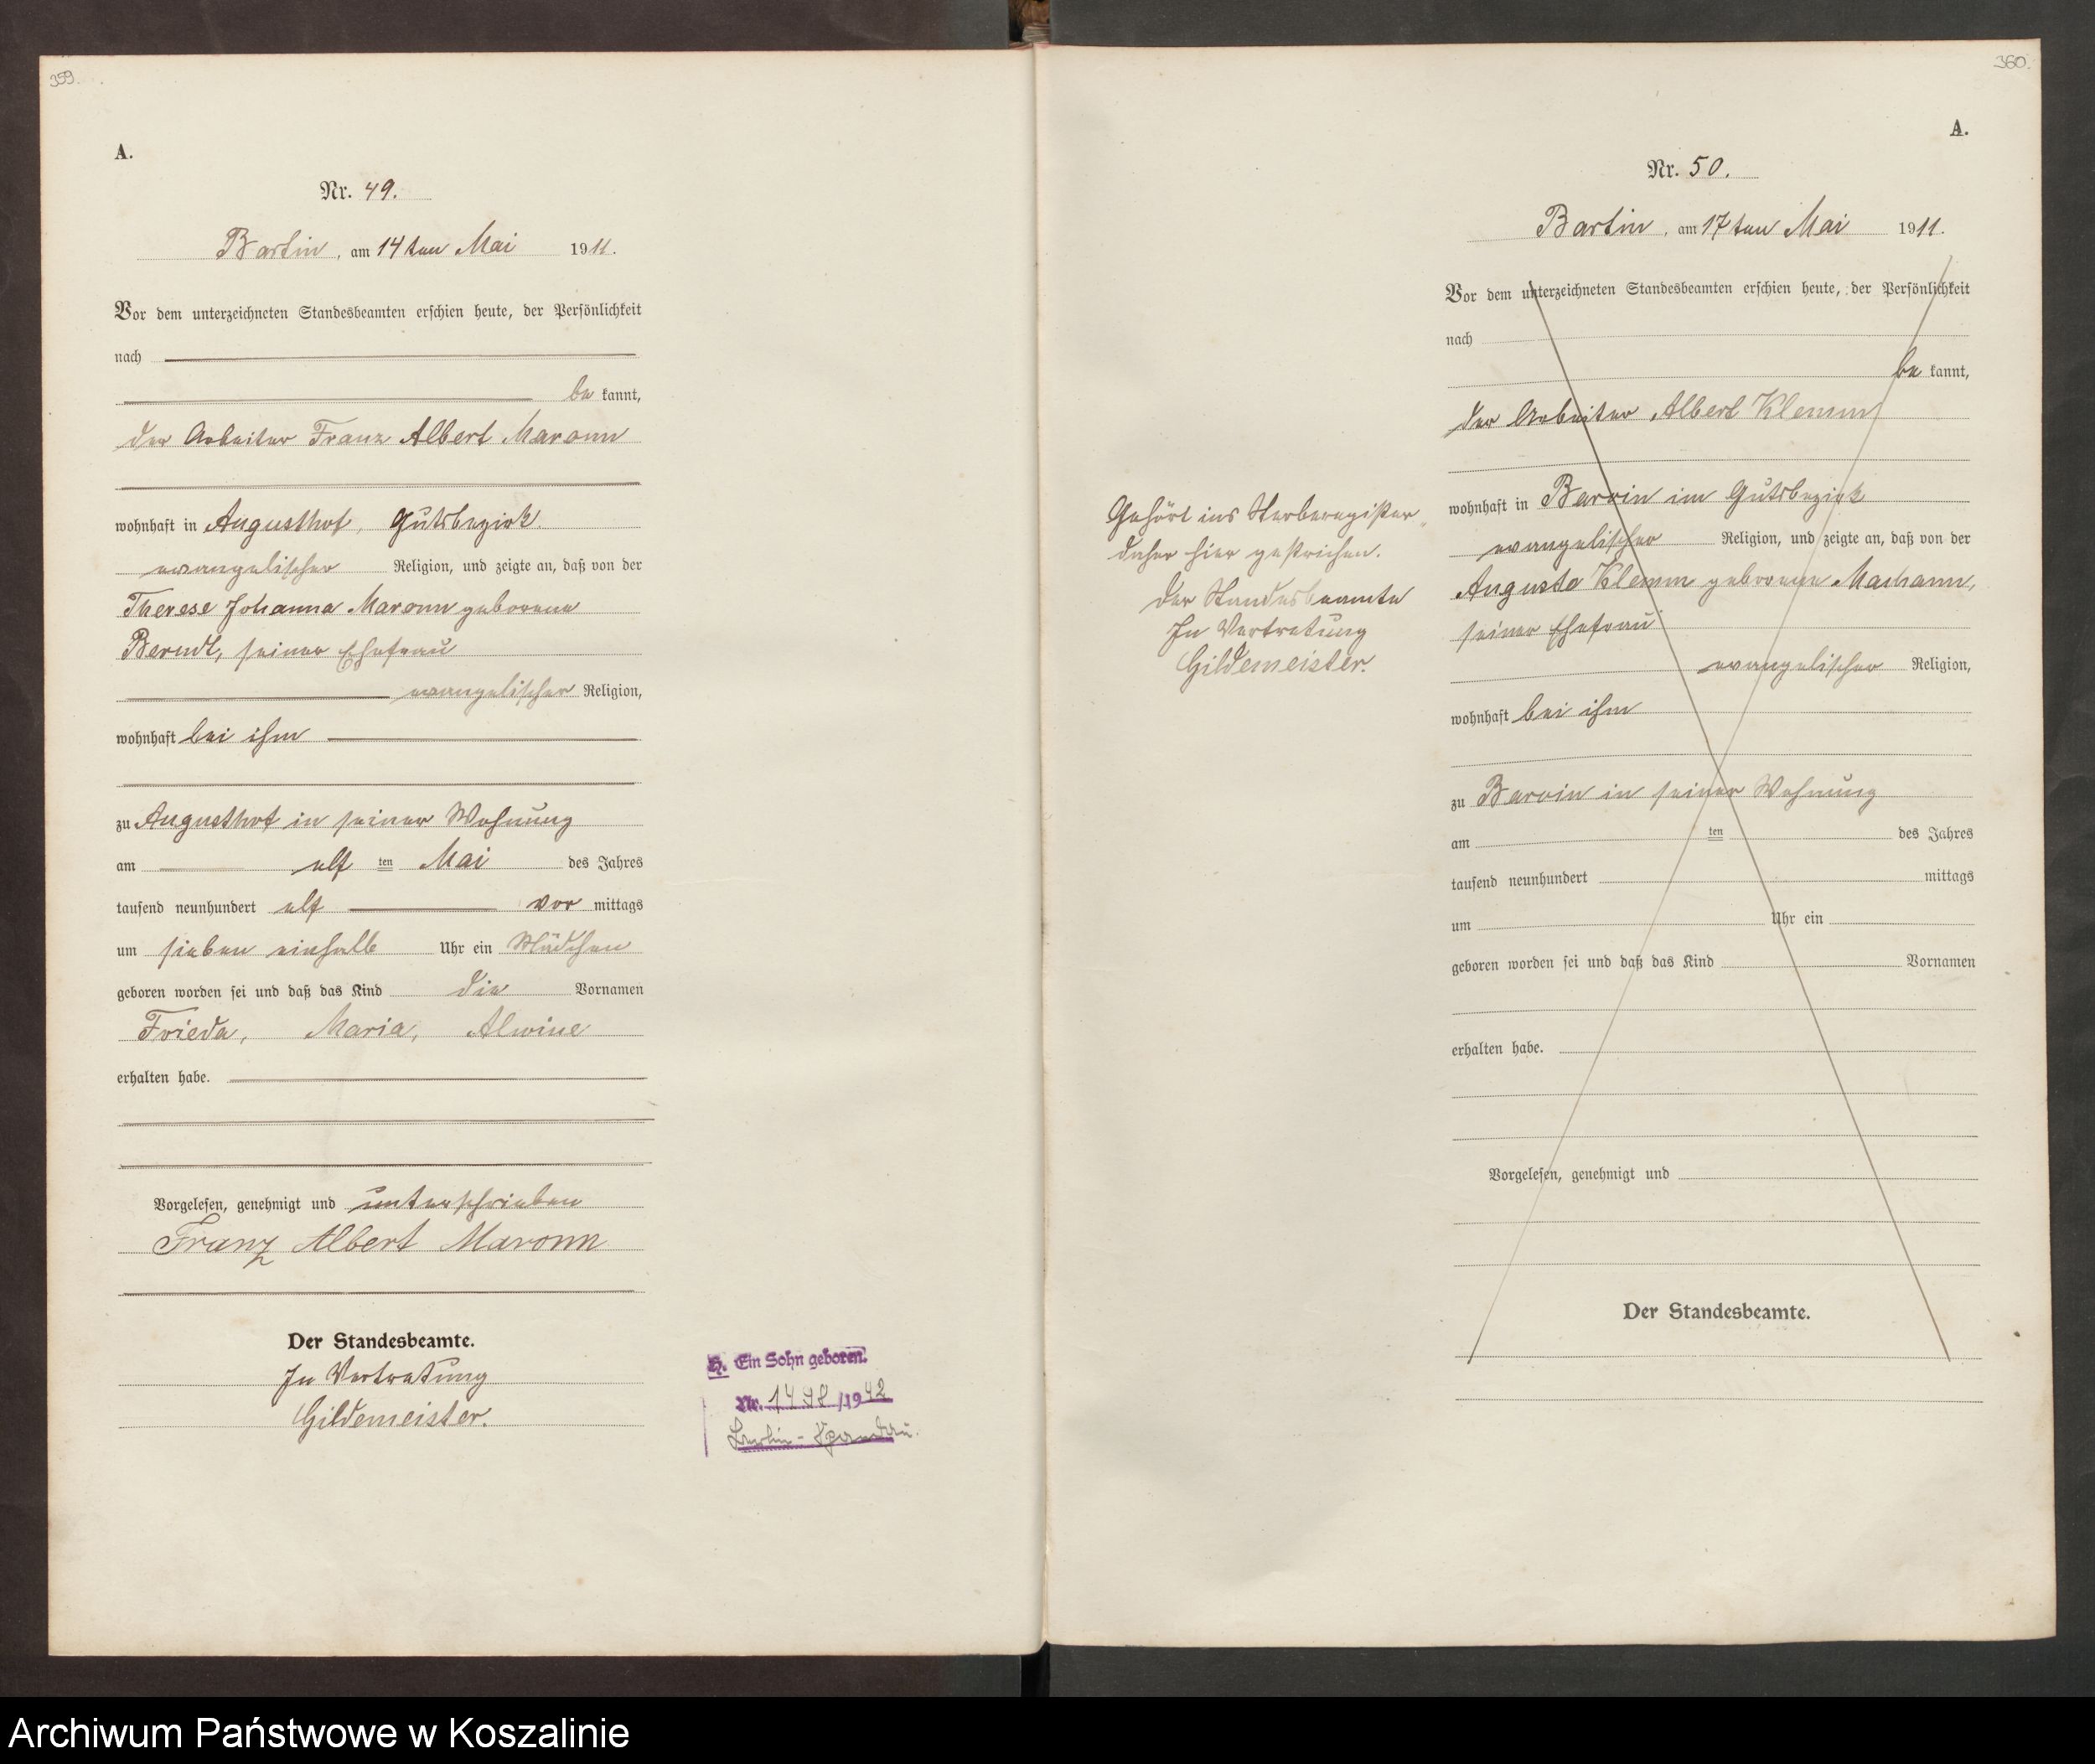 359.
A.
Nr. 49.
Bartin, am 14ten Mai 1911.
Vor dem unterzeichneten Standesbeamten erschien heute, der Persönlichkeit
nach
be kannt,
der Arbeiter Franz Albert Maronn
wohnhaft in Augusthof, Gutsbezirk
evangelischer Religion, und zeigte an, daß von der
Therese Johanna Maronn geborene
Berndt, seiner Ehefrau
evangelischer Religion,
wohnhaft bei ihm
zu Augusthof in seiner Wohnung
am elf ten Mai des Jahres
tausend neunhundert elf vor mittags
um sieben einhalb Uhr ein Mädchen
geboren worden sei und daß das Kind die Vornamen
Frieda, Maria, Alwine
erhalten habe.
Vorgelesen, genehmigt und unterschrieben
Franz Albert Maronn
Der Standesbeamte.
In Vertretung
Gildemeister.
H. Ein Sohn geboren.
Nr. /1942
Berlin-Spandau.
360.
A.
Nr. 50.
Bartin, am 17ten Mai 1911.
Vor dem unterzeichneten Standesbeamten erschien heute, der Persönlichkeit
nach
be kannt,
der Arbeiter Albert Klemm
wohnhaft in Barvin im Gutsbezirk
evangelischer Religion, und zeigte an, daß von der
Auguste Klemm geborene
seiner Ehefrau
evangelischer Religion,
wohnhaft bei ihm
zu Barvin in seiner Wohnung
am ten des Jahres
tausend neunhundert mittags
um Uhr ein
geboren worden sei und daß das Kind Vornamen
erhalten habe.
Vorgelesen, genehmigt und
Der Standesbeamte.
Gehört ins Sterberegister
daher hier gestrichen.
Der Standesbeamte
In Vertretung
Gildemeister.
Archiwum Państwowe w Koszalinie